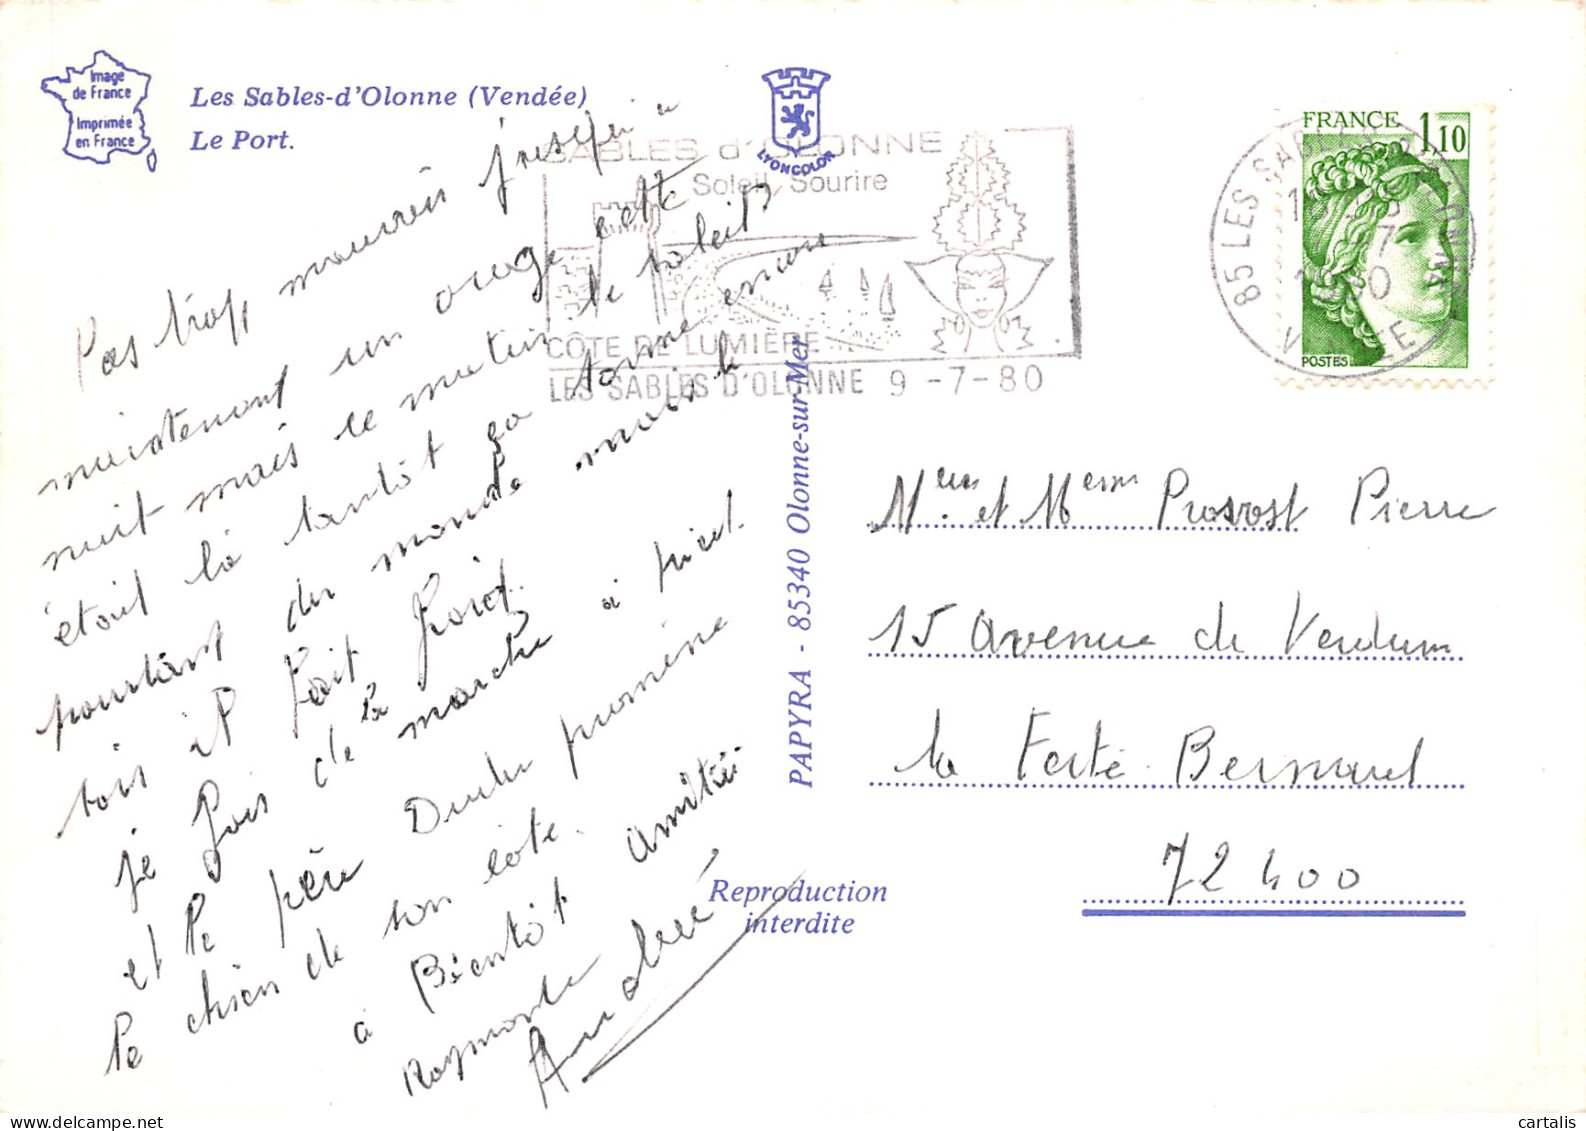 Image
de France
Imprimée
en France
Les Sables-d'Olonne (Vendée)
Le Port.
LYONCOLOR
SABLES d'OLONNE
Soleil, Sourire
CÔTE DE LUMIÈRE
LES SABLES D'OLONNE 9 -7-80
85 LES SABLES
FRANCE 1,10
POSTES
Pas trop mauvais jusqu'à
maintenant un orage cette
nuit mais ce matin le soleil
était là tantôt ça tonne encore
pourtant du monde mais le
soir il fait froid.
je fais de la marche à pied.
et le père Dudu promène
le chien de son côté.
à Bientôt amitiés
Raymonde
André
PAPYRA - 85340 Olonne-sur-Mer
Reproduction
interdite
et Provost Pierre
15 Avenue de Verdum
la Ferté Bernard
72400
cartalis